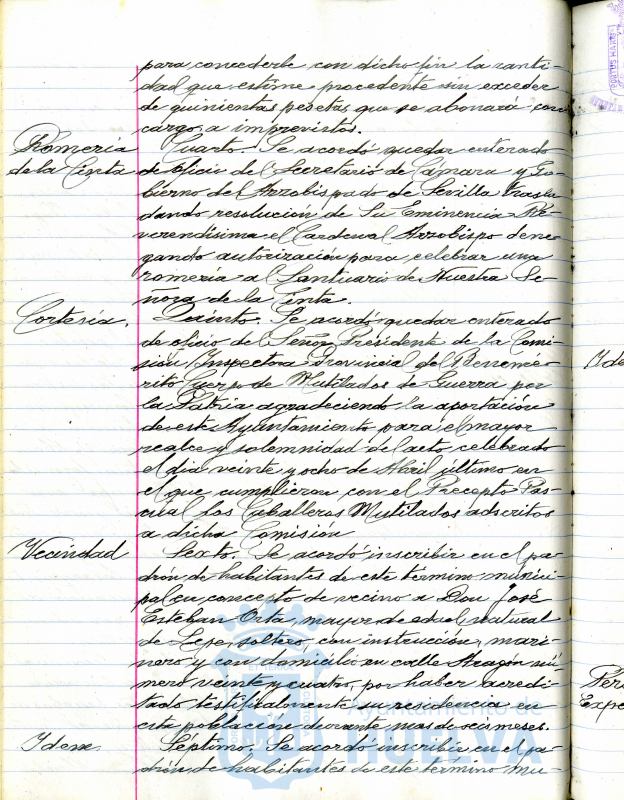 para concederle con dicho fin la canti-
dad que estime procedente sin exceder
de quinientas pesetas que se abonará con
cargo a imprevistos.
Romería
de la Cinta
Cuarto. Se acordó quedar enterado
de oficio del Secretario de Cámara y Go-
bierno del Arzobispado de Sevilla trasla
dando resolución de Su Eminencia Re-
verendísima el Cardenal Arzobispo dene-
gando autorización para celebrar una
romería al Santuario de Nuestra Se-
ñora de la Cinta.
Cortesía.
Quinto. Se acordó quedar enterado
de oficio del Señor Presidente de la Comi-
sión Inspectora Provincial del Benemé-
rito Cuerpo de Mutilados de Guerra por
la Patria agradeciendo la aportación
de este Ayuntamiento para el mayor
realce y solemnidad del acto celebrado
el día veinte y ocho de Abril último en
el que cumplieron con el Precepto Pas-
cual los Caballeros Mutilados adscritos
a dicha Comisión
Vecindad
Sexto. Se acordó inscribir en el pa-
drón de habitantes de este término munici-
pal en concepto de vecino a Don José
Esteban Orta, mayor de edad, natural
de Lepe, soltero, con instrucción, mari-
nero y con domicilio en calle Aragón nú-
mero veinte y cuatro, por haber acredi-
tado testificalmente su residencia en
esta población durante mas de seis meses.
Idem
Séptimo. Se acordó inscribir en el pa-
drón de habitantes de este término mu-
Ayuntamiento de
HUELVA
Ide
Per
Expe